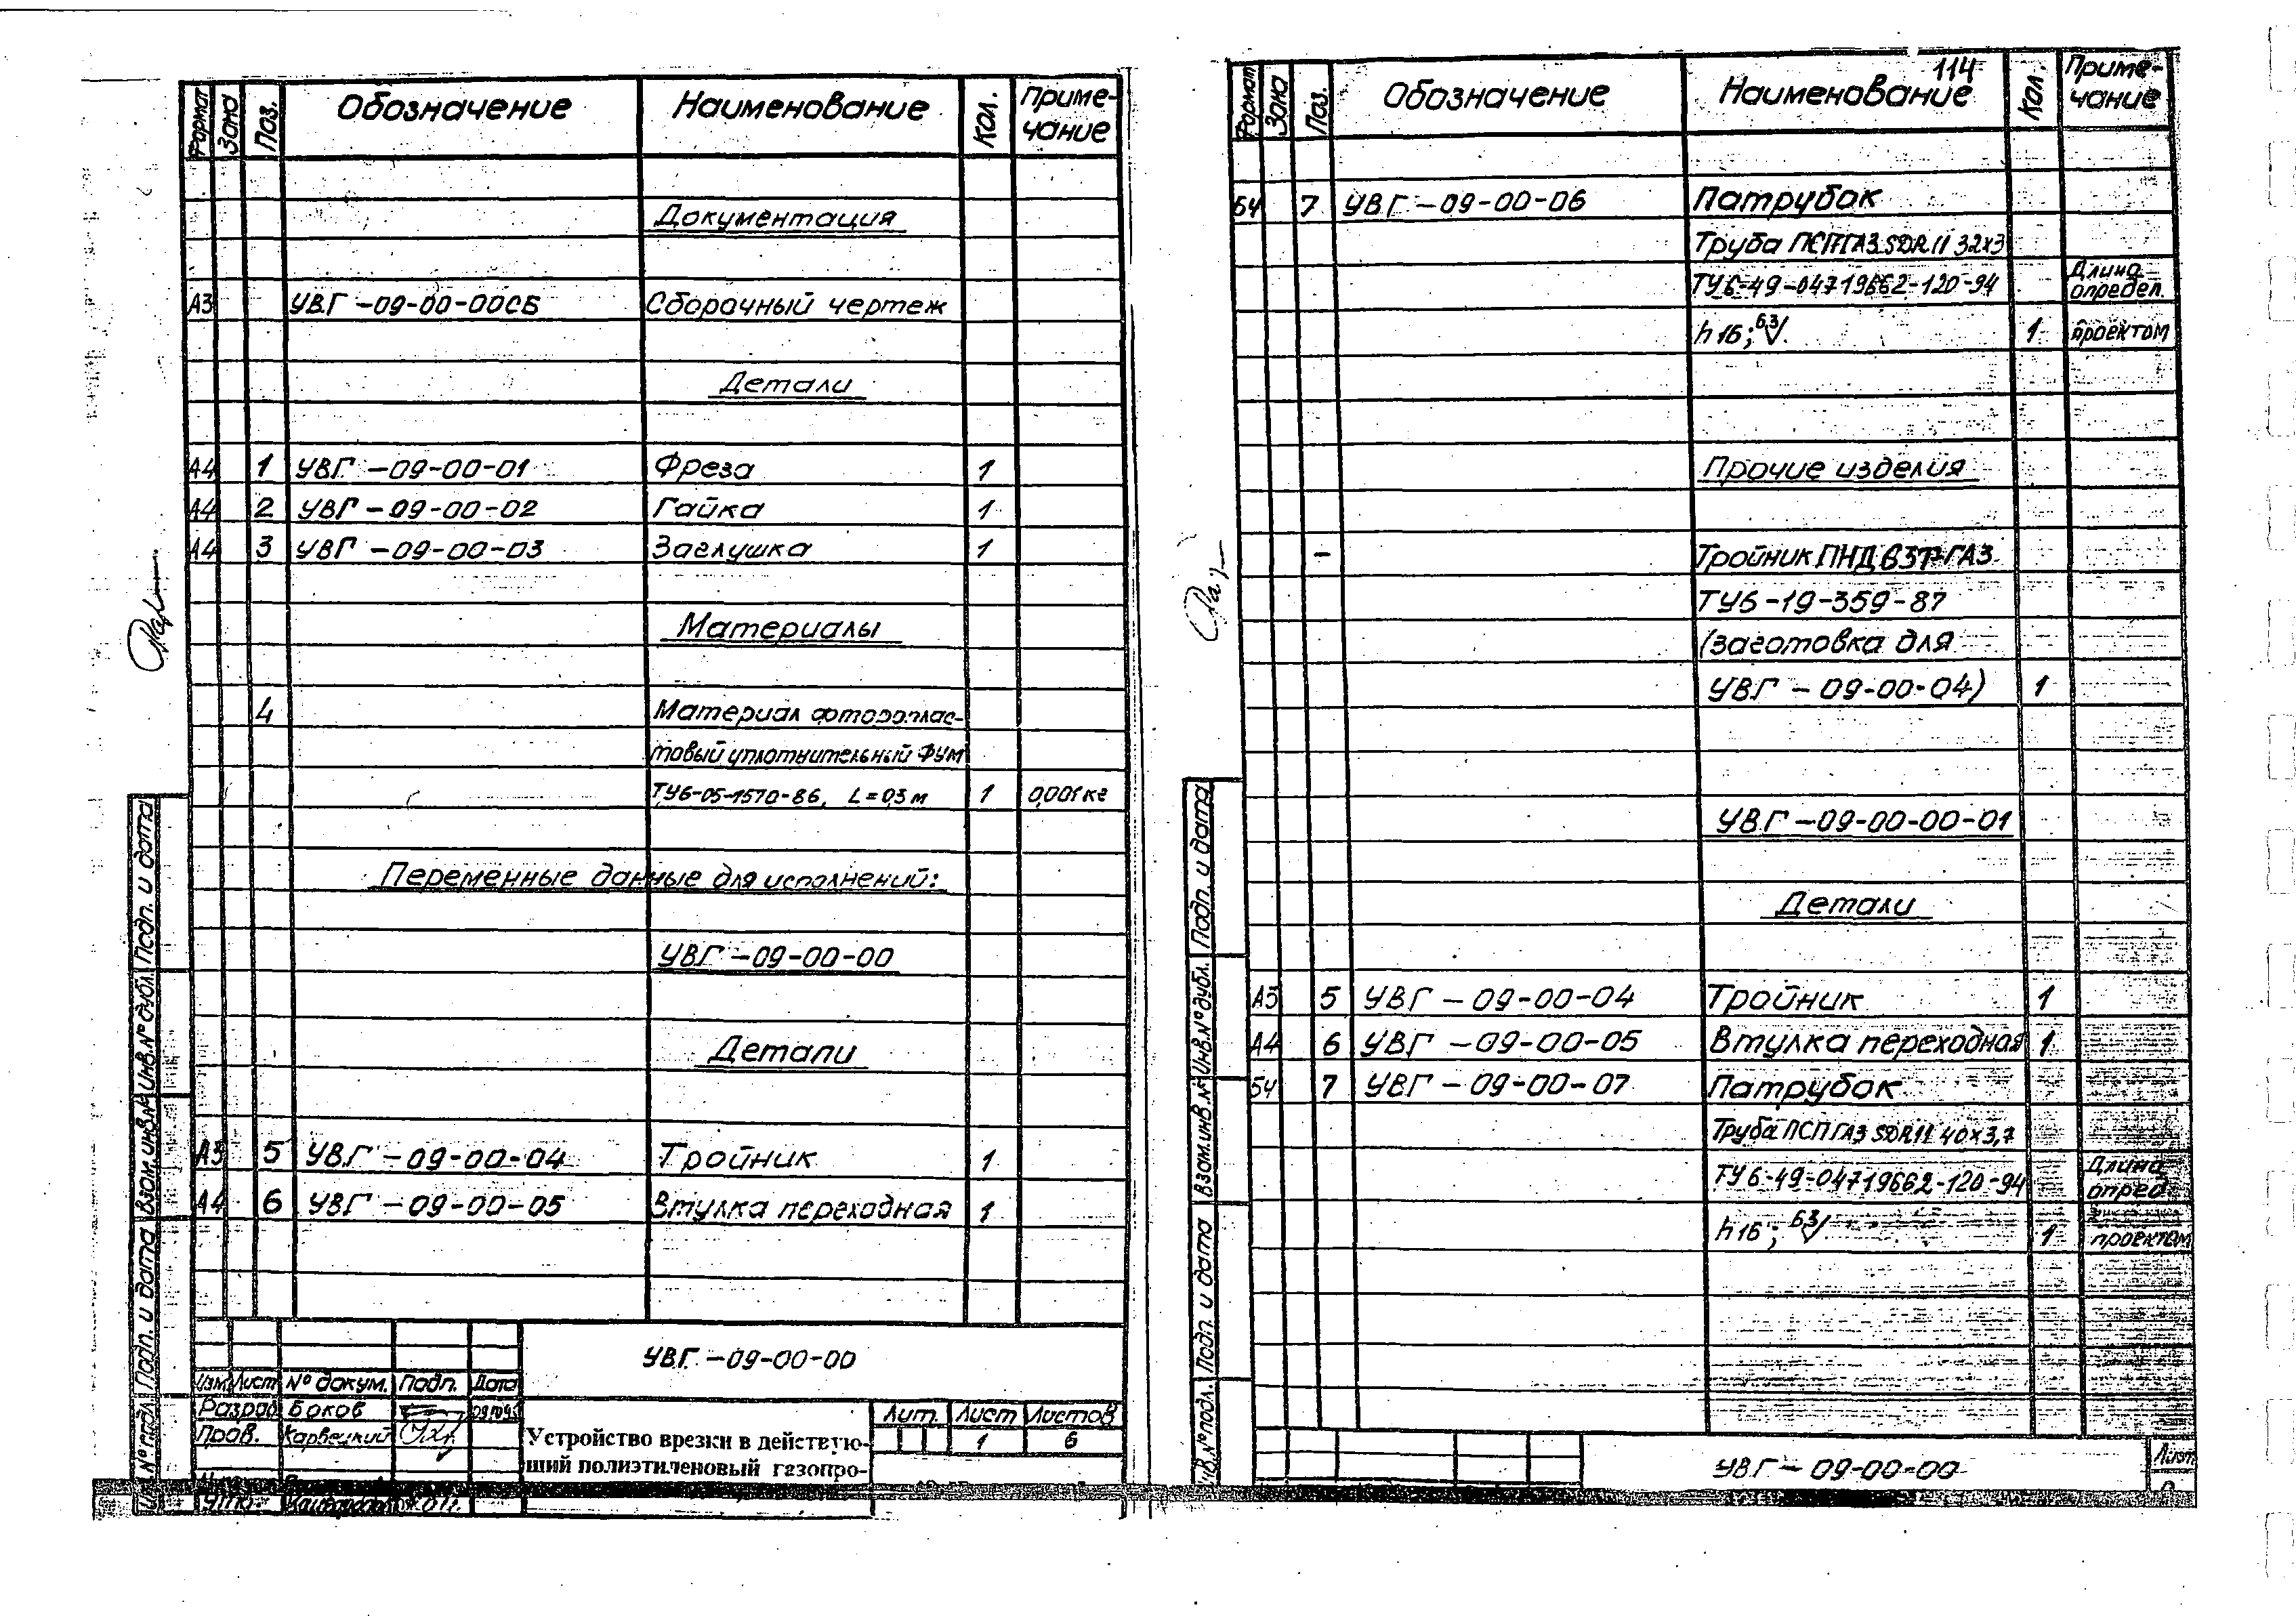 Формат Зона Поз. Обозначение Наименование Кол. Приме-
чание
Документация
А3 УВГ-09-00-00СБ Сборочный чертеж
Детали
А4 1 УВГ-09-00-01 Фреза 1
А4 2 УВГ-09-00-02 Гайка 1
А4 3 УВГ-09-00-03 Заглушка 1
Материалы
4 Материал фторoплас-
товый уплотнительный ФУМ
ТУ6-05-1570-86, L=0,3 м 1 0,001кг
Переменные данные для исполнений:
УВГ-09-00-00
Детали
А3 5 УВГ-09-00-04 Тройник 1
А4 6 УВГ-09-00-05 Втулка переходная 1
Подп. и дата
Инв.№ дубл.
Взам.инв.№
Подп. и дата
Инв.№ подл.
УВГ-09-00-00
Изм Лист № докум. Подп. Дата
Разраб Боков
Пров. Карвецкий
Устройство врезки в действую-
щий полиэтиленовый газопро-
Лит. Лист Листов
1 6
114
Формат Зона Поз. Обозначение Наименование Кол. Приме-
чание
БЧ 7 УВГ-09-00-06 Патрубок
Труба ПСП ГАЗ SDR 11 32х3
ТУ6-49-04719662-120-94 Длина
определ.
h16; 6,3 1 проектом
Прочие изделия
- Тройник ПНД 63Т ГАЗ
ТУ6-19-359-87
(заготовка для
УВГ-09-00-04) 1
УВГ-09-00-00-01
Детали
А3 5 УВГ-09-00-04 Тройник 1
А4 6 УВГ-09-00-05 Втулка переходная 1
БЧ 7 УВГ-09-00-07 Патрубок
Труба ПСП ГАЗ SDR11 40х3,7
ТУ6-49-04719662-120-94 Длина
опред.
h16; 6,3 1 проектом
Подп. и дата
Инв.№ дубл.
Взам.инв.№
Подп. и дата
Инв.№ подл.
УВГ-09-00-00
Лист